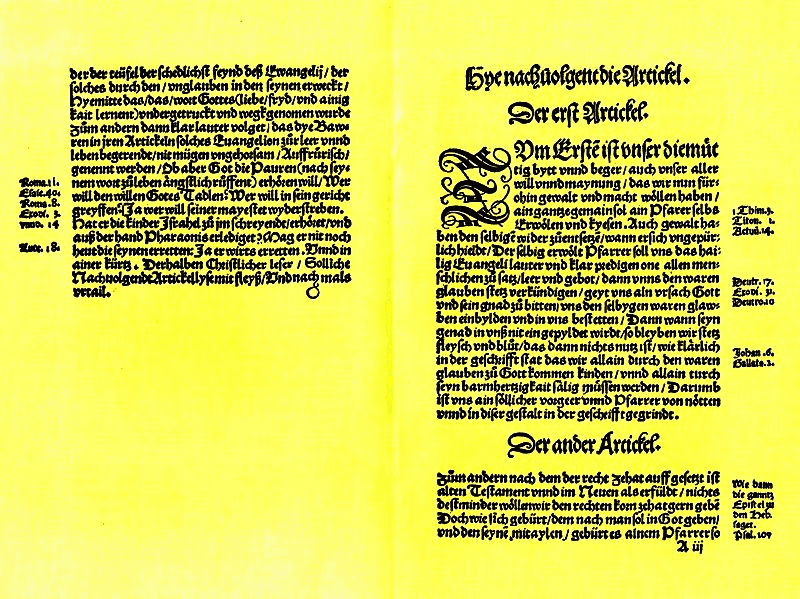 der der teüfel der schedlichst feynd deß Ewangelij / der
solches durch den / vnglauben in den seynen erweckt /
Hyemitte das / das / wort Gottes (liebe / fryd / vnd ainig
kait lernent) vndergetruckt vnd wegkgenomen wurde
Zům andern dann klar lauter volget / das dye Baw-
ren in jren Artickeln solches Euangelion zůr leer vnnd
leben begerendt / nit mügen vngehorsam / Auffrürisch /
genennt werden / Ob aber Got die Pauren (nach sey-
nem wort zůleben ängstlich rüffent) erhören will / Wer
will den willen Gottes Tadlen? Wer will in sein gericht
greyffen? Ja wer will seiner mayestet wyderstreben.
Hat er die kinder Israhel zů jm schreyendt / erhöret / vnd
auß der hand Pharaonis erlediget? Mag er nit noch
heut die seynen erretten: Ja er wirts erretten. Vnnd in
ainer kürtz. Derhalben Christlicher leser / Solliche
Nachuolgendt Artickel lyse mit fleyß / Vnd nach mals
vrtail.
Roma. 11.
Esaie. 40.
Roma. 8.
Exodi. 3.
vnnd. 14
Luce. 18.
Hye nachuolgent die Artickel.
Der erst Artickel.
ZVm Erstē ist vnser diemüt
tig bytt vnnd beger / auch vnser aller
will vnnd maynung / das wir nun für-
ohin gewalt vnd macht wöllen haben /
ain gantze gemain sol ain Pfarer selbs
Erwölen vnd kyesen. Auch gewalt ha-
ben den selbigē wider zůentsetzē / wann er sich vngepür-
lich hieldt / Der selbig erwölt Pfarrer soll vns das hai-
lig Euangeli lauter vnd klar predigen one allen men-
schlichen zůsatz / leer vnd gebot / dann vnns den waren
glauben stetz verkündigen / geyt vns ain vrsach Gott
vnd sein gnad zů bitten / vnns den selbygen waren glaw-
ben einbylden vnd in vns bestetten / Dann wann seyn
genad in vnß nit eingepyldet wirdt / so bleyben wir stetz
fleysch vnd blůt / das dann nichts nutz ist / wie klärlich
in der geschrifft stat das wir allain durch den waren
glauben zů Gott kommen kinden / vnnd allain durch
seyn barmhertzigkait sälig müssen werden / Darumb
ist vns ain söllicher vorgeer vnnd Pfarrer von nötten
vnnd in diser gestalt in der geschrifft gegrindt.
1. Thim. 3.
Titon. 1.
Actuū. 14.
Deutr. 17.
Exodi. 31.
Deutro. 10
Johan. 6.
Gallata. 2.
Der ander Artickel.
Zům andern nach dem der recht Zehat auff gesetzt ist
alten Testament vnnd im Neuen als erfüldt / nichts
destminder wöllen wir den rechten korn zehat gern gebē
Doch wie sich gebürt / dem nach man sol in Got geben /
vnd den seynē mitaylen / gebürt es ainem Pfarrer so
Wie dann
die gantz
Epistel zů
den Heb.
saget.
Psal. 109
A iij